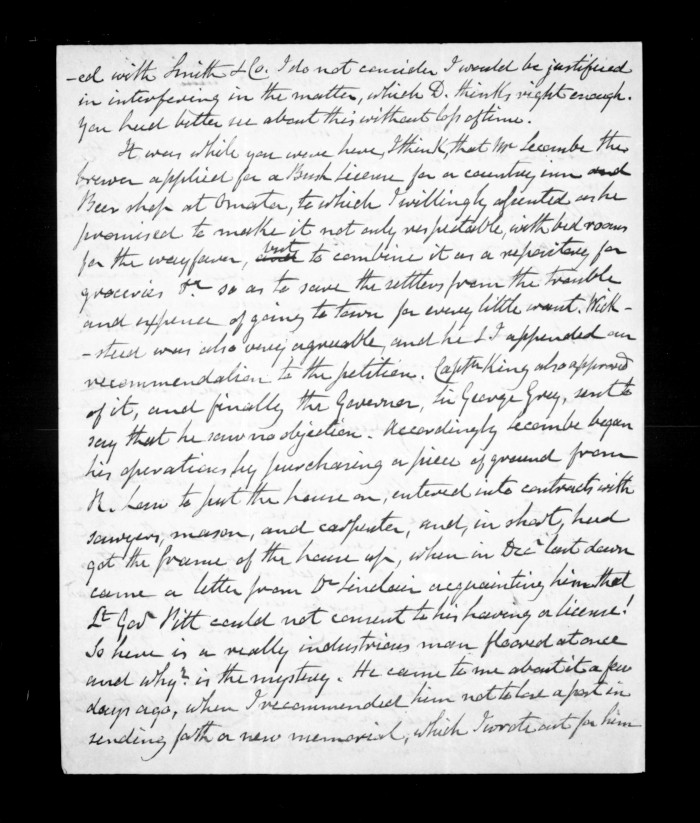 -ed with Smith & Co. I do not consider I would be justified
in interfering in the matter, which D. thinks right enough.
You had better see about this without loss of time.
It was while you were here, I think, that Mr Seccombe the
brewer applied for a Bush License for a country inn and
Beer shop at Omata, to which I willingly assented as he
promised to make it not only respectable, with bedrooms
for the wayfarer, but to combine it as a repository for
groceries &c. so as to save the settlers from the trouble
and expence of going to town for every little want. Wick-
-steed was also very agreeable, and he & I appended our
recommendation to the petition. Captn King also approved
of it, and finally the Governor, Sir George Grey, sent to
say that he saw no objection. Accordingly Secombe began
his operations by purchasing a piece of ground from
R. to put the house on, entered into contracts with
sawyers, mason, and carpenter, and, in short, had
got the frame of the house up, when in Decr last down
came a letter from Dr Sinclair acquainting him that
Lt Govr Pitt could not consent to his having a license!
So here is a really industrious man floored at once
and why? is the mystery. He came to me about it a few
days ago, when I recommended him not to lose a post in
sending forth a new memorial, which I wrote out for him